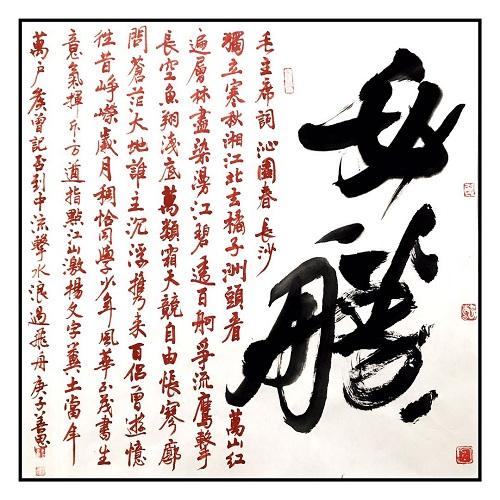 必勝
毛主席詞 沁園春 長沙
獨立寒秋湘江北去橘子洲頭看萬山紅
遍層林盡染漫江碧透百舸爭流鷹擊
長空魚翔淺底萬類霜天競自由悵寥廓
問蒼茫大地誰主沉浮攜來百侶曾遊憶
往昔崢嶸歲月稠恰同學少年風華正茂書生
意氣揮斥方遒指點江山激揚文字糞土當年
萬户侯曾記否到中流擊水浪遏飛舟庚子善思